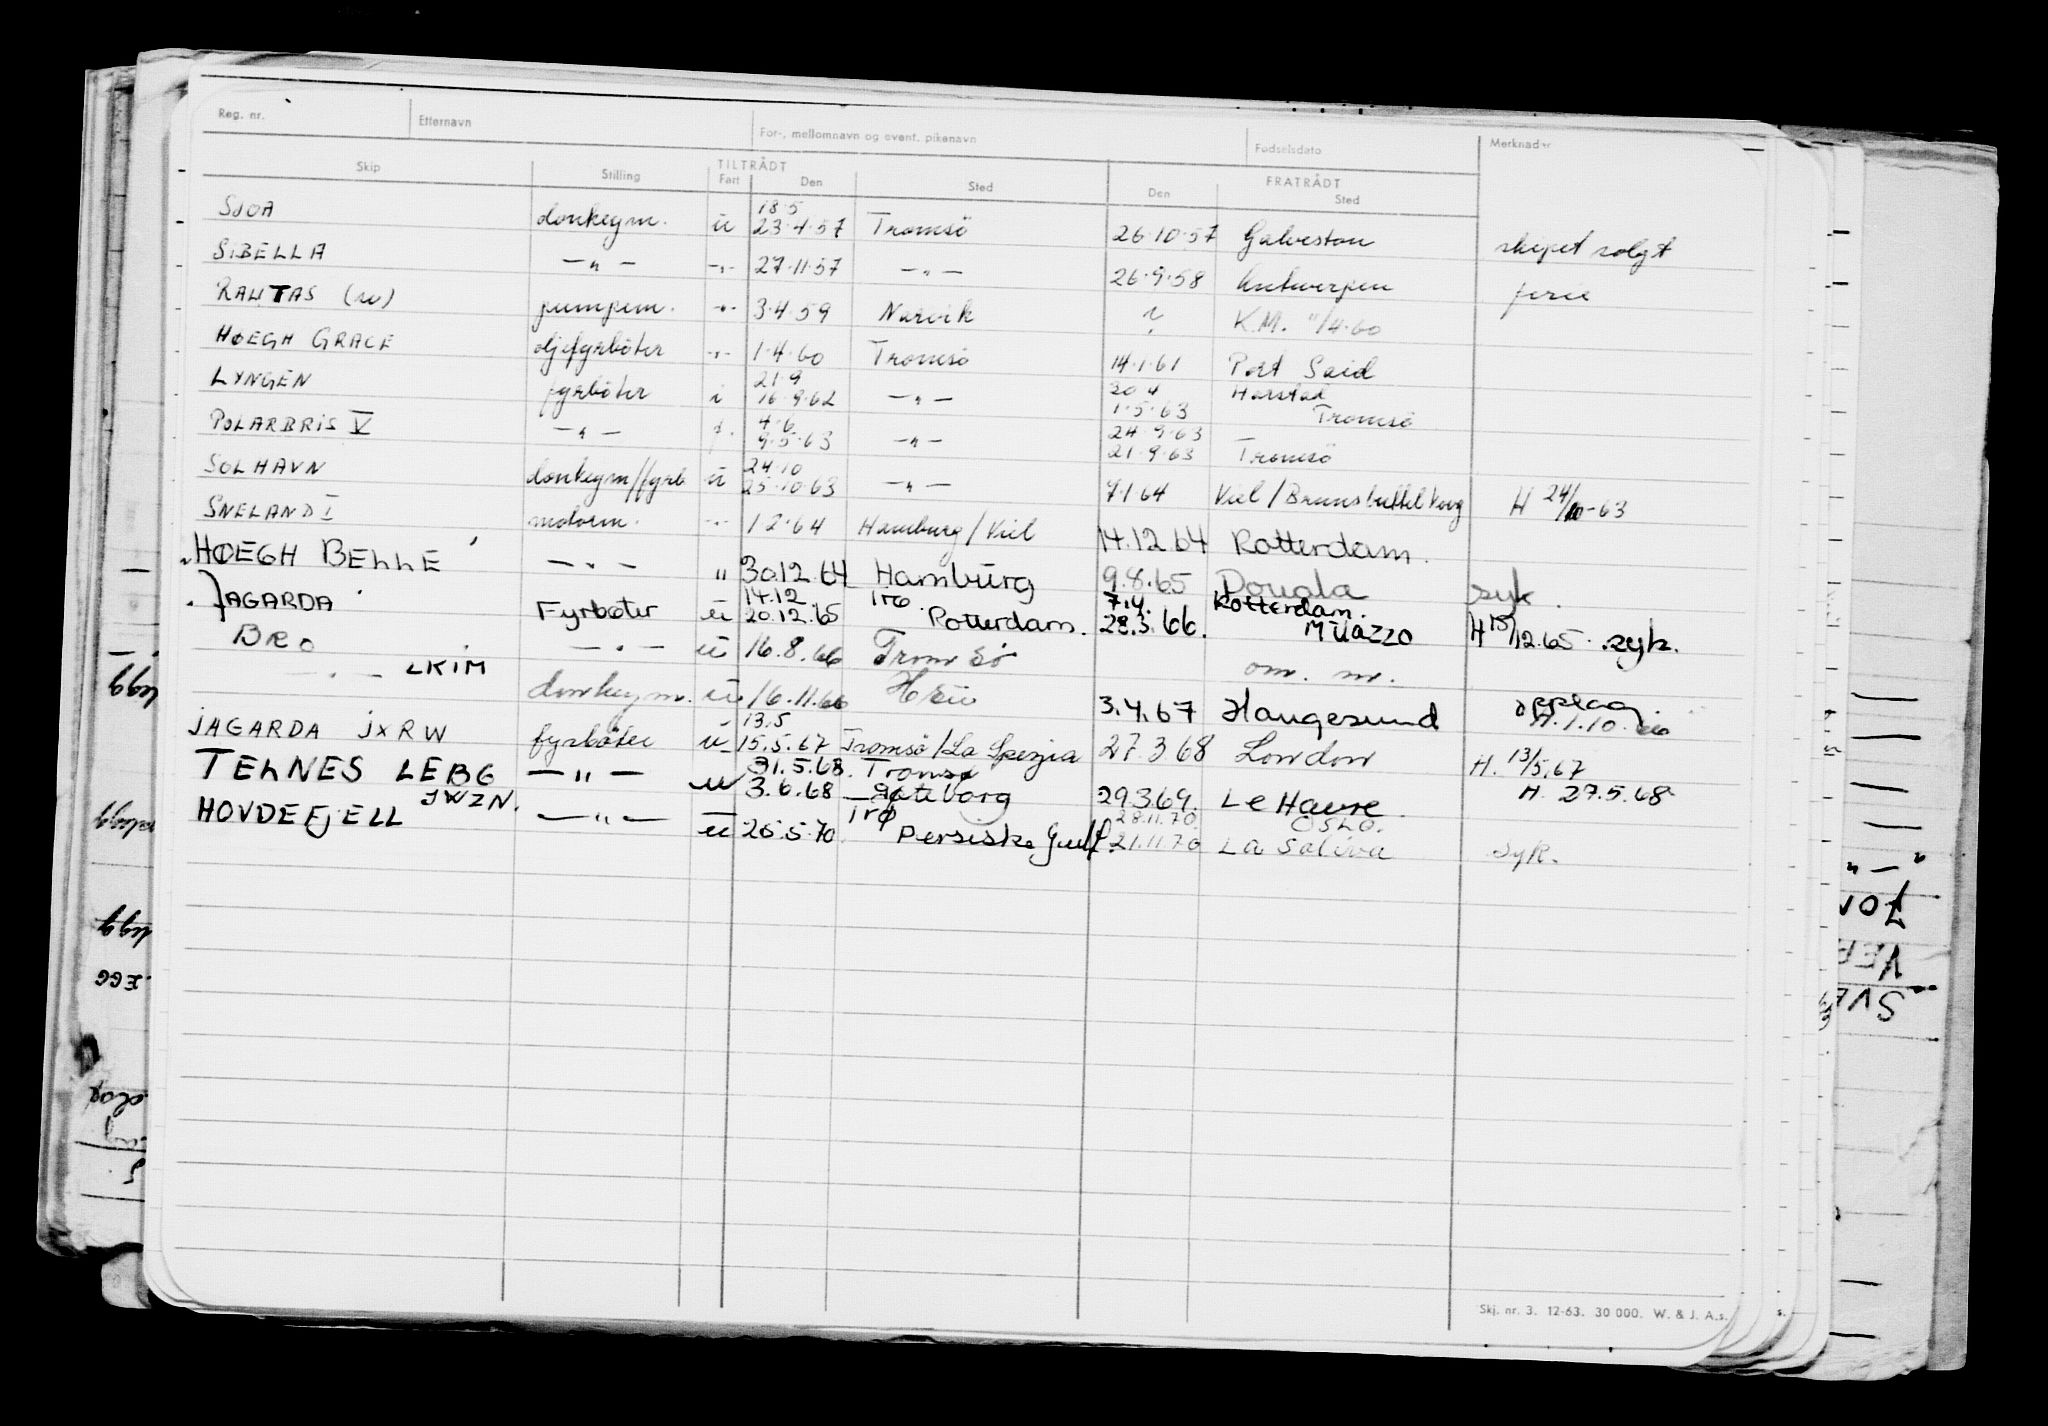 Reg. nr. Etternavn For-, mellomnavn og event. pikenavn Fødselsdato Merknader
TILTRÅDT FRATRÅDT
Skip Stilling Fart Den Sted Den Sted
18.5
SJOA donkeym. u 23.4.57 Tromsö 26.10.57 Galveston skipet solgt
SIBELLA —"— -"- 27.11.57 —"— 26.9.58 Antwerpen ferie
RAUTAS (sv) pumpem. -"- 3.4.59 Narvik ? K.M. "/4.60
HØEGH GRACE oljefyrböter -"- 1.4.60 Tromsö 14.1.61 Port Said
21.9 30.4 Harstad
LYNGEN fyrböter i 16.9.62 —"— 1.5.63 Tromsö
4.6 24.9.63
POLARBRIS V —"— f. 9.5.63 —"— 21.9.63 Tromsö
24.10
SOLHAVN donkeym/fyrb u 25.10.63 —"— 9.1.64 Kiel/Brunsbuttel Koog H 24/10-63
SNELAND I motorm. -"- 1.2.64 Hamburg/Kiel 14.12.64 Rotterdam.
HØEGH BELLE —"— " 30.12.64 Hamburg 9.8.65 Douala syk.
14.12 Trø 7.4. Rotterdam.
JAGARDA Fyrbøter u 20.12.65 Rotterdam. 28.3.66. Milazzo H 15/12.65. syk.
BRO —"— u 16.8.66 Tromsö om. m.
—"— LKIM donkeym. u 16.11.66 Hsiu 3.4.67 Haugesund opplag. H.1.10.66
13.5
JAGARDA JXRW fyrböter u 15.5.67 Tromsö/La Spezia 27.3.68 London H. 13/5.67
31.5.68. Tromsø
TELNES LEBG —"— u 3.6.68 Gøteborg 29.3.69. Le Havre. H. 27.5.68
JWZN. Trø 28.11.70. OSLO.
HOVDEFJELL —"— u 26.5.70 Persiske Gulf. 21.11.70 La Saliva syk.
Skj. nr. 3. 12-63. 30 000. W. & J. A.s.